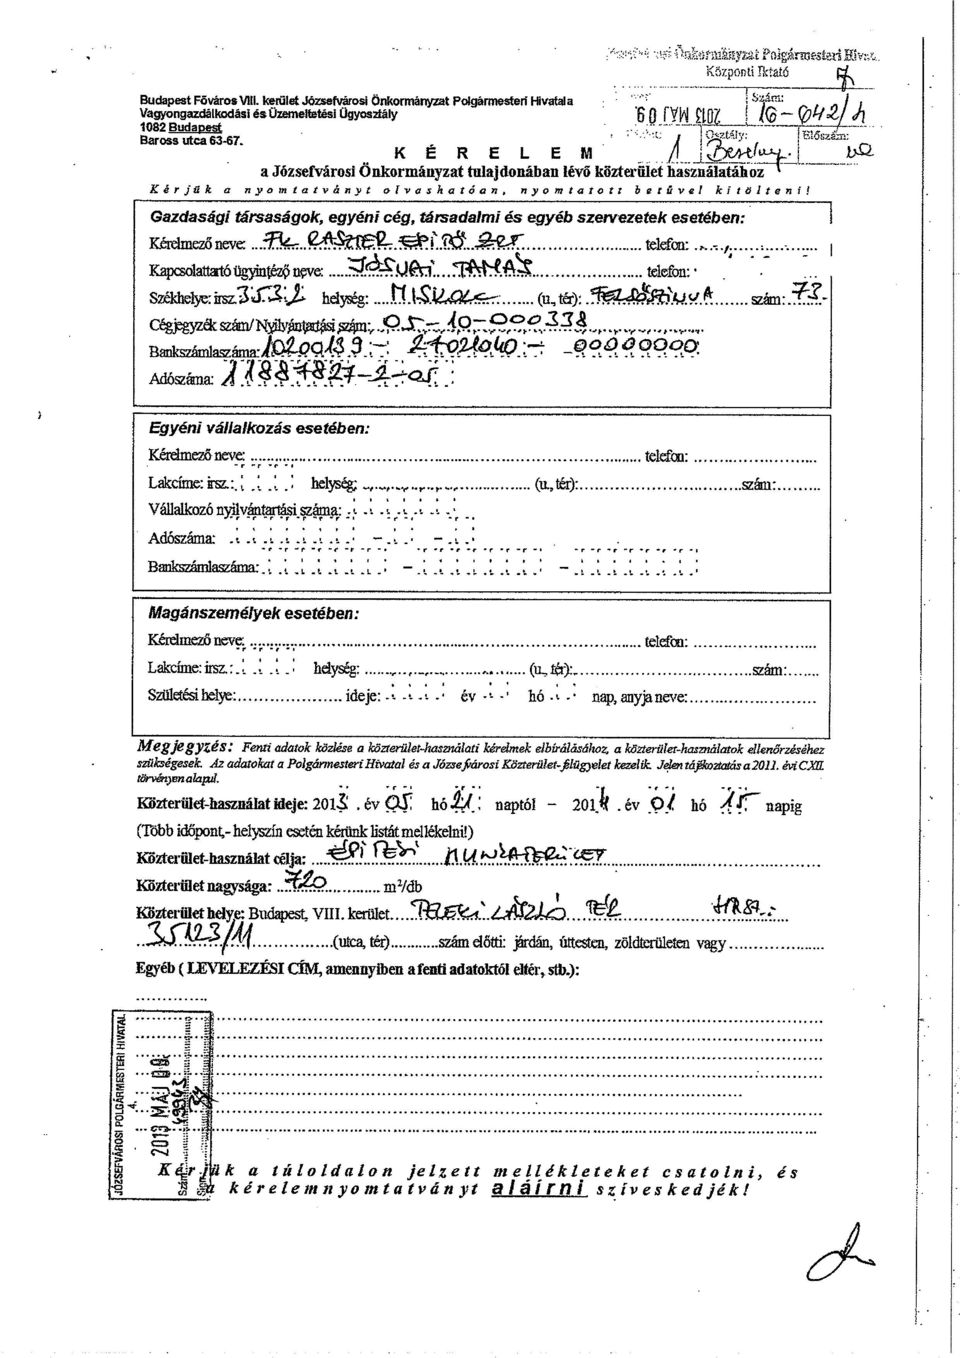 Önkormányzat Polgármesteri
Központi Iktató
Budapest Főváros VIII. kerület Józsefvárosi Önkormányzat Polgármesteri Hivatala
Vagyongazdálkodási és Üzemeltetési Ügyosztály
1082 Budapest
Baross utca 63-67.
2013 MÁJ 09.
Szám:
16-042/
Osztály:
Előszám:
1
KÉRELEM
a Józsefvárosi Önkormányzat tulajdonában lévő közterület használatához
Kérjük a nyomtatványt olvashatóan, nyomtatott betűvel kitölteni!
Gazdasági társaságok, egyéni cég, társadalmi és egyéb szervezetek esetében:
Kérelmező neve: FK RASZTER ÉPÍTŐ ZRT telefon:
Kapcsolattartó ügyintéző neve: JÓSVAI TAMÁS telefon:
Székhelye: irsz. 3532 helység: MISKOLC (u., tér): FELSŐSZINVA szám: 73.
Cégjegyzék szám/ Nyilvántartási szám: 05-10-000338
Bankszámlaszáma: 10200139-27021040-00000000
Adószáma: 11887827-2-05
Egyéni vállalkozás esetében:
Kérelmező neve: telefon:
Lakcíme: irsz.: helység: (u., tér): szám:
Vállalkozó nyilvántartási száma:
Adószáma: - -
Bankszámlaszáma: - -
Magánszemélyek esetében:
Kérelmező neve: telefon:
Lakcíme: irsz.: helység: (u., tér): szám:
Születési helye: ideje: év hó nap, anyja neve:
Megjegyzés: Fenti adatok közlése a közterület-használati kérelmek elbírálásához, a közterület-használatok ellenőrzéséhez
szükségesek. Az adatokat a Polgármesteri Hivatal és a Józsefvárosi Közterület-felügyelet kezelik. Jelen tájékoztatás a 2011. évi CXII.
törvényen alapul.
Közterület-használat ideje: 2013. év 05. hó 21. naptól - 2014. év 01 hó 15 napig
(Több időpont,- helyszín esetén kérünk listát mellékelni!)
Közterület-használat célja: ÉPÍTÉSI MUNKATERÜLET
Közterület nagysága: 720 m²/db
Közterület helye: Budapest, VIII. kerület TELEKI LÁSZLÓ TÉR HRSZ.:
35123/11 (utca, tér) szám előtti: járdán, úttesten, zöldterületen vagy
Egyéb ( LEVELEZÉSI CÍM, amennyiben a fenti adatoktól eltér, stb.):
JÓZSEFVÁROSI POLGÁRMESTERI HIVATAL
4.
2013 MÁJ 09.
Szám:
Kérjük a túloldalon jelzett mellékleteket csatolni, és
a kérelemnyomtatványt aláírni szíveskedjék!